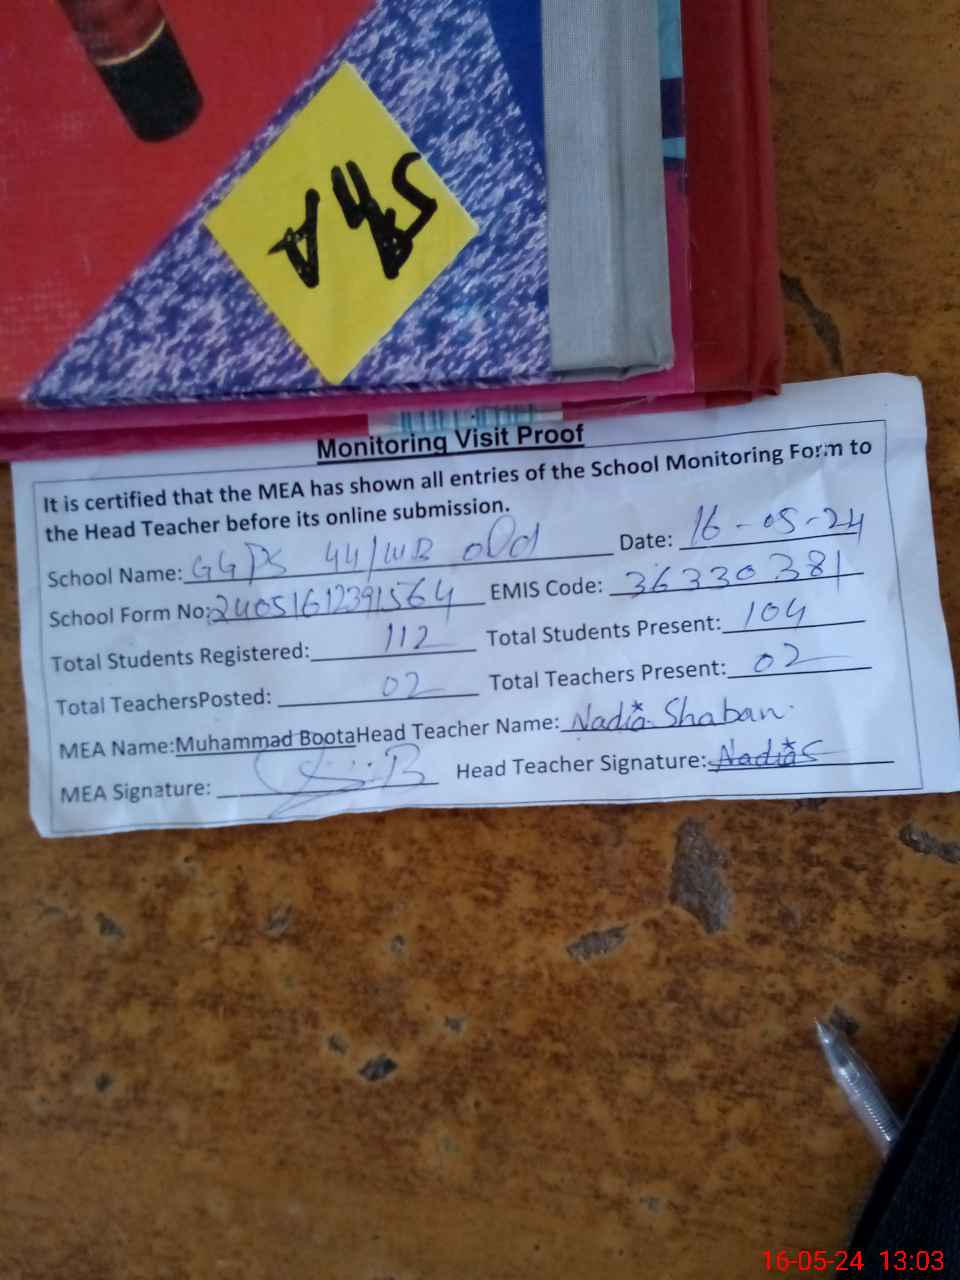 5th A
Monitoring Visit Proof
It is certified that the MEA has shown all entries of the School Monitoring Form to
the Head Teacher before its online submission.
School Name: GGPS 44/WB old Date: 16-05-24
School Form No: 24051612391564 EMIS Code: 36330381
Total Students Registered: 112 Total Students Present: 104
Total TeachersPosted: 02 Total Teachers Present: 02
MEA Name:Muhammad BootaHead Teacher Name: Nadia Shaban
MEA Signature: Head Teacher Signature: Nadia S
16-05-24 13:03